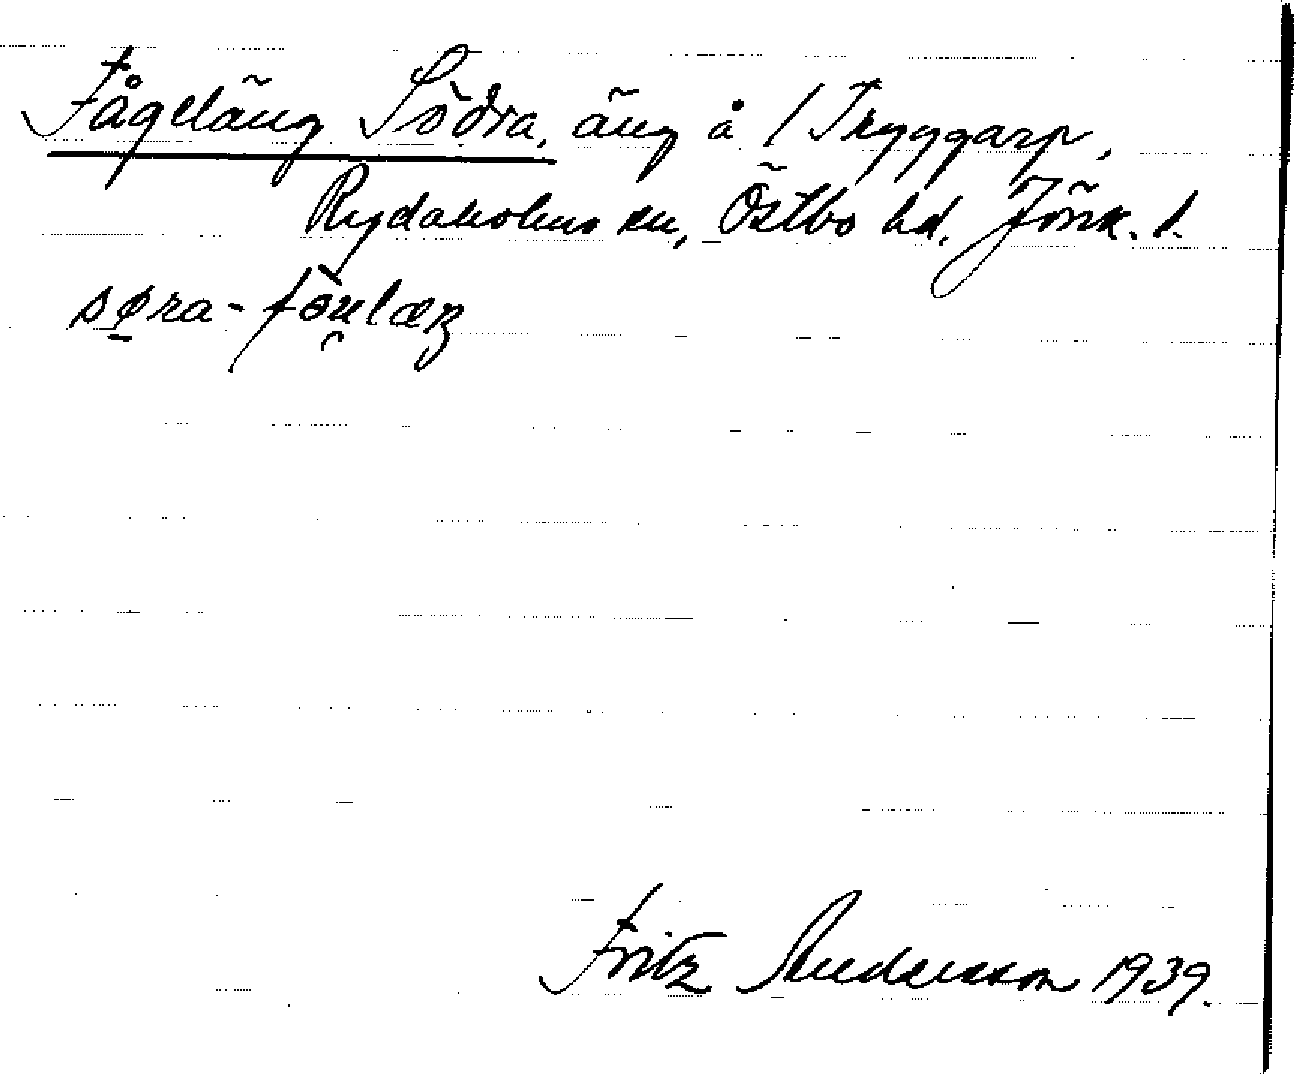 Fågeläng Södra, äng å 1 Tryggarp,
Rydaholms sn, Östbo hd. Jönk. l.
søra-fɔulæŋ
Fritz Andersson 1939.